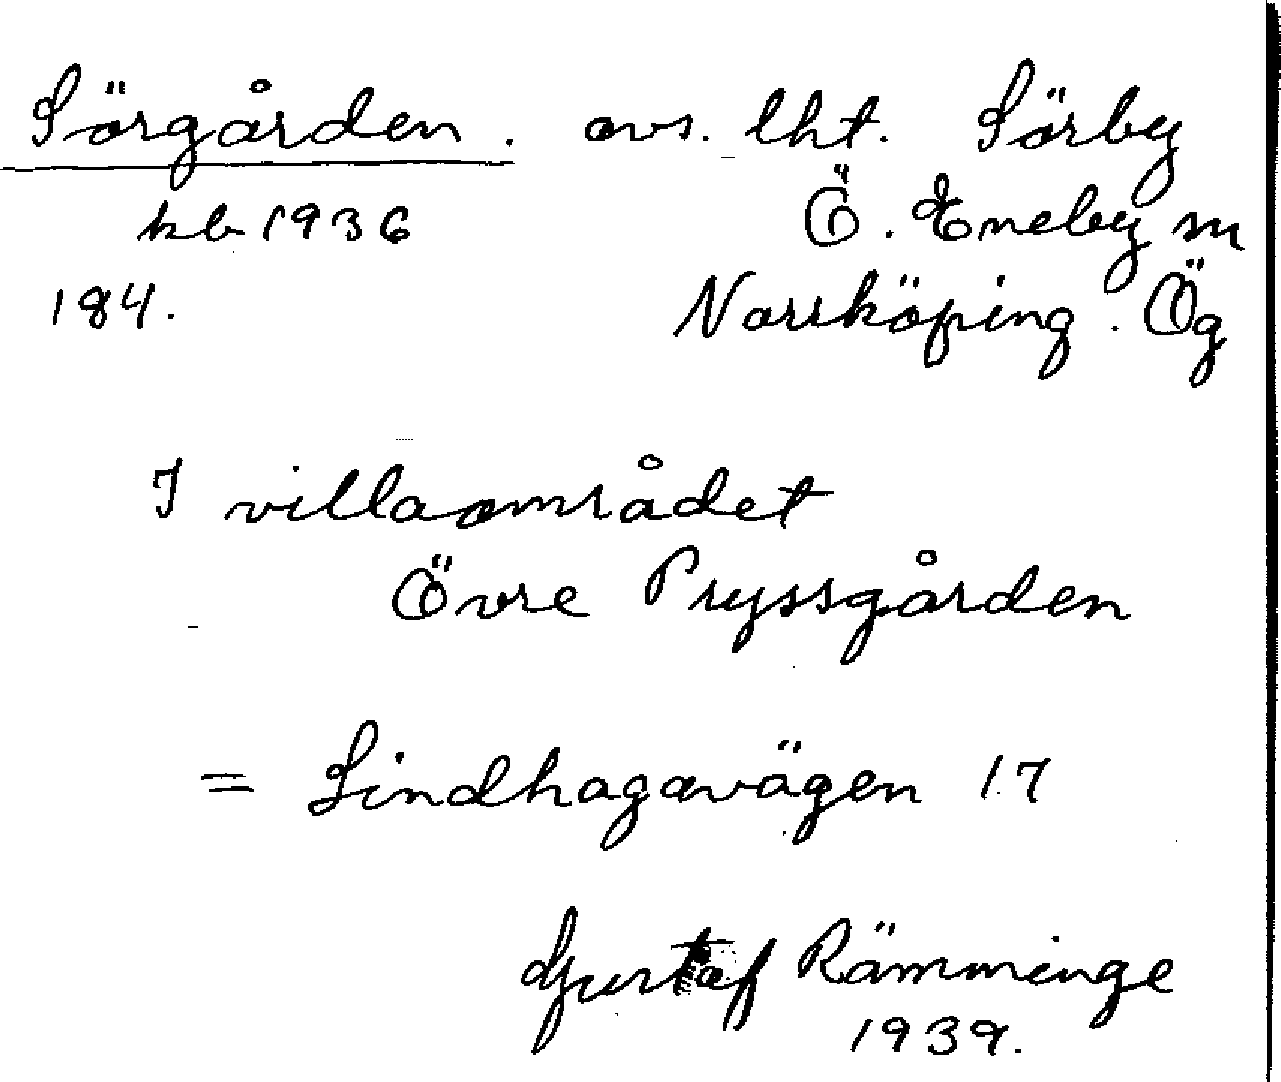 Sörgården. avs. lht. Sörby
kb 1936 Ö. Eneby sn
184. Norrköping. Ög
I villaområdet
Övre Pryssgården
= Lindhagavägen 17
Gustaf Rämminge
1939.